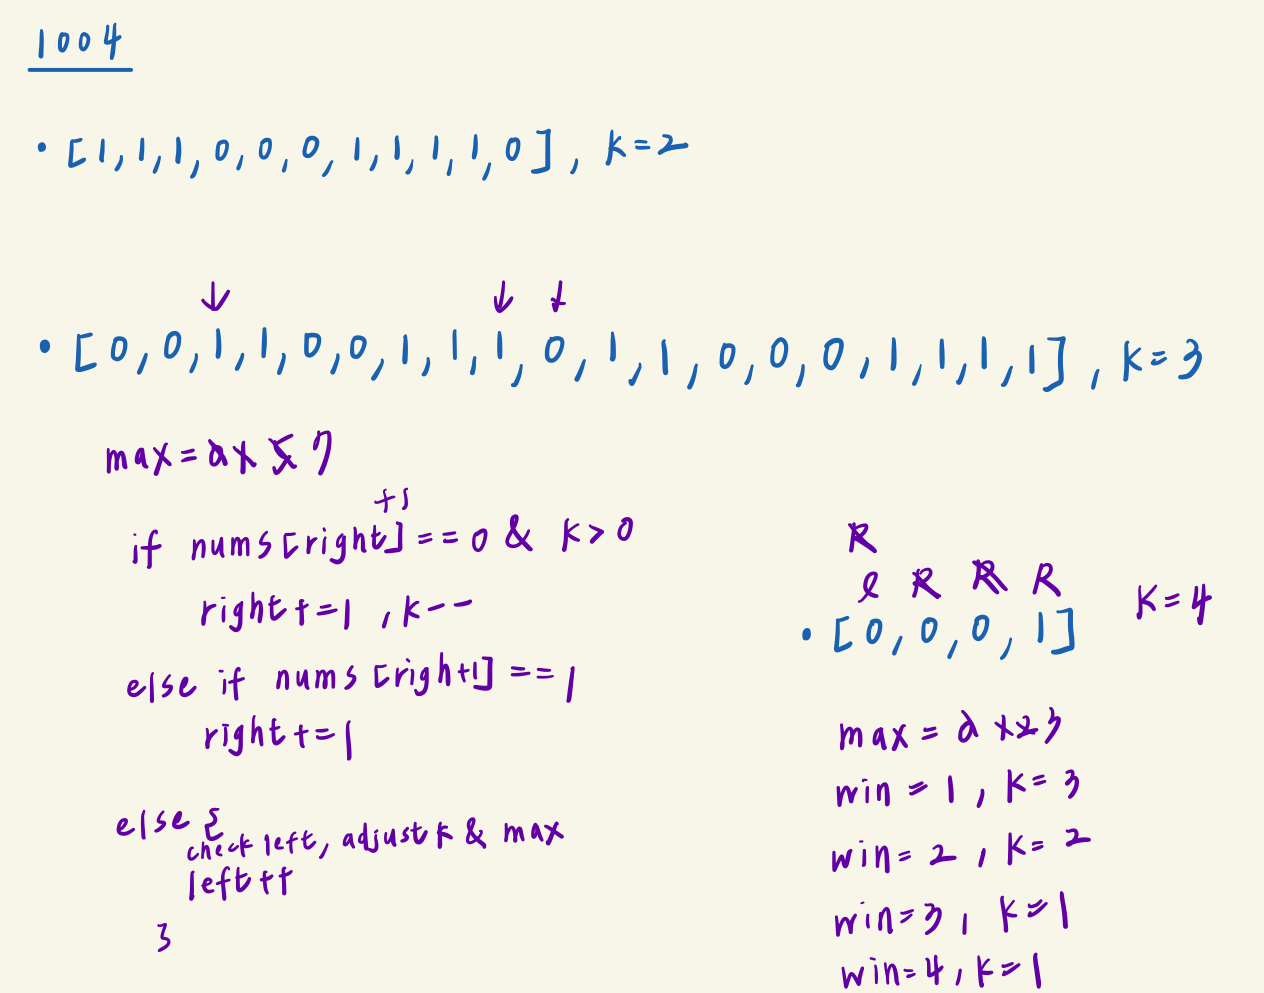 1004
• [1,1,1,0,0,0,1,1,1,1,0], K=2
• [0,0,1,1,0,0,1,1,1,0,1,1,0,0,0,1,1,1,1], K=3
max = 5 7
if nums[right] == 0 & K>0
right+=1, k--
else if nums[righ+1] == 1
right+=1
else {
check left, adjust k & max
left++
}
R
l R R R K=4
• [0,0,0,1]
max = 2 3
win = 1, K= 3
win= 2, K= 2
win=3, K=1
win=4, K=1